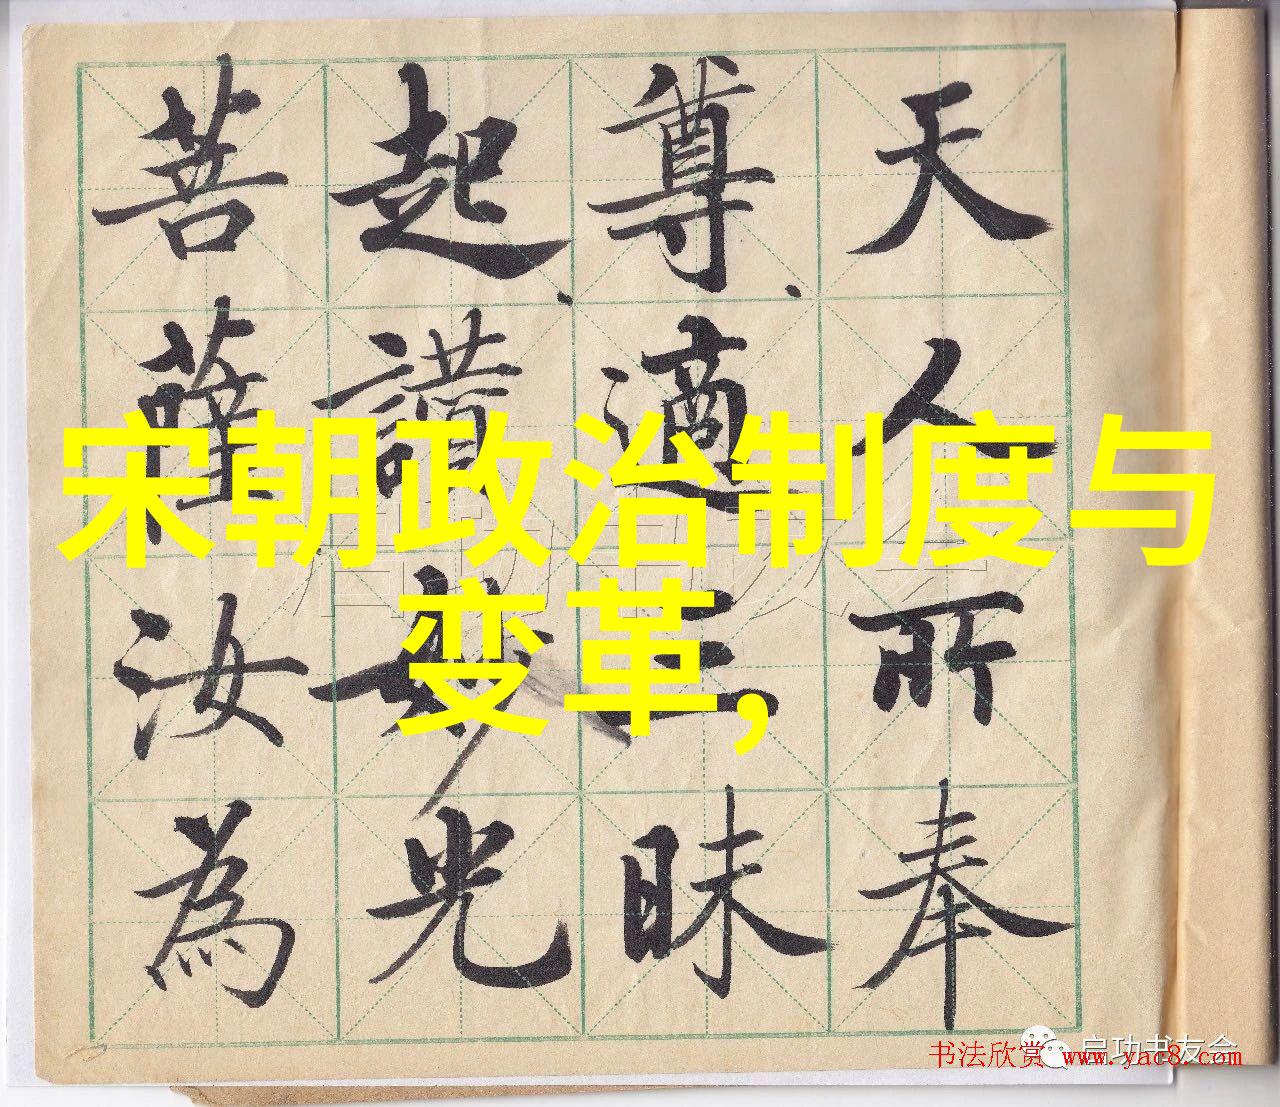 宋朝政治制度与
变革,
天人所奉
尊、適三昧
起、讚妙光
菩薩汝為
启功书友会
启功书友会
书法欣赏 www.yac8.com